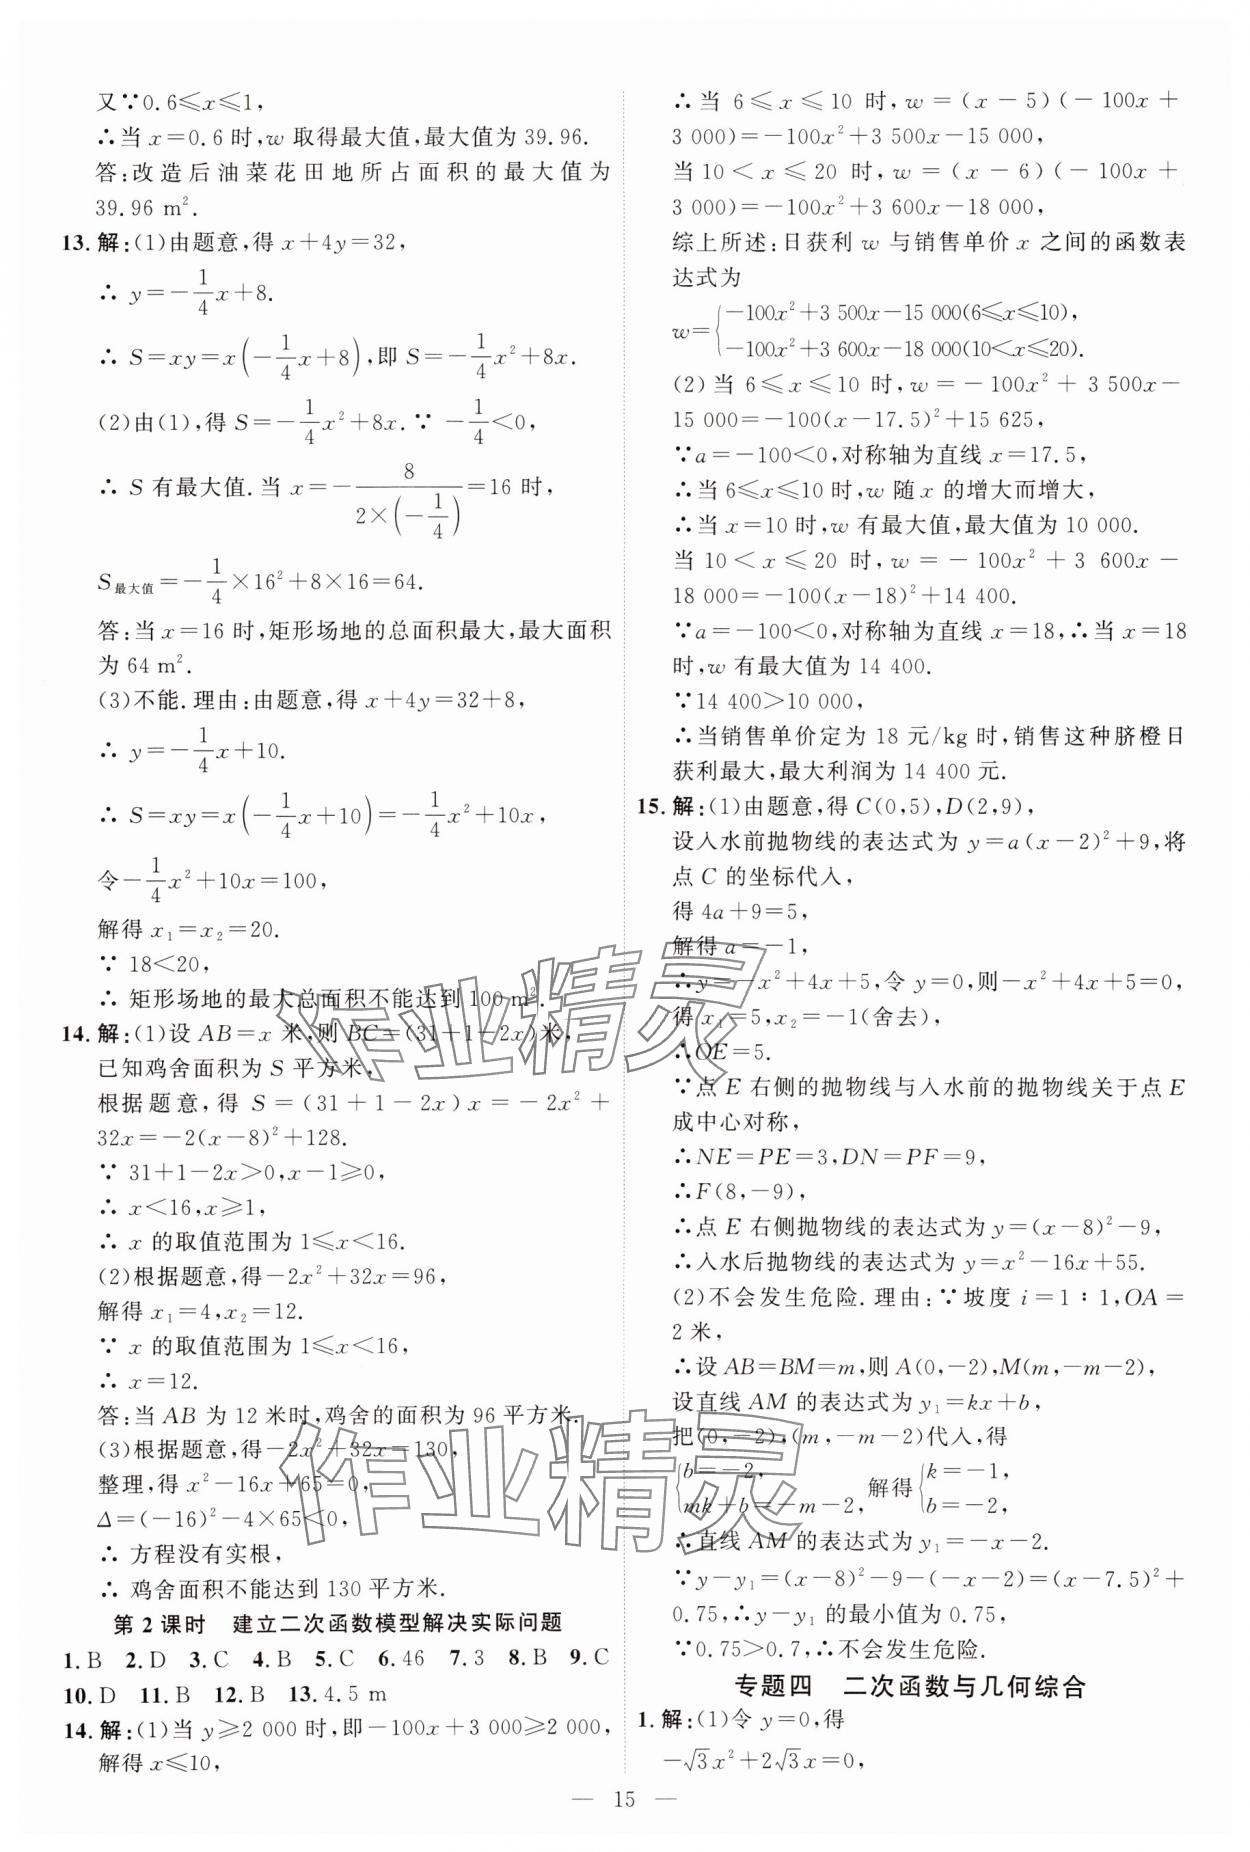 又∵0.6≤x≤1,
∴当 x=0.6 时,w 取得最大值,最大值为 39.96.
答:改造后油菜花田地所占面积的最大值为
39.96 m².
13.解:(1)由题意,得 x+4y=32,
∴ y=-1/4x+8.
∴ S=xy=x(-1/4x+8),即 S=-1/4x²+8x.
(2)由(1),得 S=-1/4x²+8x.∵ -1/4<0,
∴ S 有最大值.当 x=-8/(2×(-1/4))=16 时,
S最大值=-1/4×16²+8×16=64.
答:当 x=16 时,矩形场地的总面积最大,最大面积
为 64 m².
(3)不能.理由:由题意,得 x+4y=32+8,
∴ y=-1/4x+10.
∴ S=xy=x(-1/4x+10)=-1/4x²+10x,
令-1/4x²+10x=100,
解得 x₁=x₂=20.
∵ 18<20,
∴ 矩形场地的最大总面积不能达到 100 m².
14.解:(1)设 AB=x 米,则 BC=(31+1-2x)米,
已知鸡舍面积为 S 平方米,
根据题意,得 S=(31+1-2x)x=-2x²+
32x=-2(x-8)²+128.
∵ 31+1-2x>0,x-1≥0,
∴ x<16,x≥1,
∴ x 的取值范围为 1≤x<16.
(2)根据题意,得-2x²+32x=96,
解得 x₁=4,x₂=12.
∵ x 的取值范围为 1≤x<16,
∴ x=12.
答:当 AB 为 12 米时,鸡舍的面积为 96 平方米.
(3)根据题意,得-2x²+32x=130,
整理,得 x²-16x+65=0,
Δ=(-16)²-4×65<0,
∴ 方程没有实根,
∴ 鸡舍面积不能达到 130 平方米.
第 2 课时 建立二次函数模型解决实际问题
1.B 2.D 3.C 4.B 5.C 6.46 7.3 8.B 9.C
10.D 11.B 12.B 13.4.5 m
14.解:(1)当 y≥2 000 时,即-100x+3 000≥2 000,
解得 x≤10,
∴当 6≤x≤10 时,w=(x-5)(-100x+
3 000)=-100x²+3 500x-15 000,
当 10<x≤20 时,w=(x-6)(-100x+
3 000)=-100x²+3 600x-18 000,
综上所述:日获利 w 与销售单价 x 之间的函数表
达式为
w={-100x²+3 500x-15 000(6≤x≤10),
-100x²+3 600x-18 000(10<x≤20).
(2)当 6≤x≤10 时,w=-100x²+3 500x-
15 000=-100(x-17.5)²+15 625,
∵a=-100<0,对称轴为直线 x=17.5,
∴当 6≤x≤10 时,w 随 x 的增大而增大,
∴当 x=10 时,w 有最大值,最大值为 10 000.
当 10<x≤20 时,w=-100x²+3 600x-
18 000=-100(x-18)²+14 400.
∵a=-100<0,对称轴为直线 x=18,∴当 x=18
时,w 有最大值为 14 400.
∵14 400>10 000,
∴当销售单价定为 18 元/kg 时,销售这种脐橙日
获利最大,最大利润为 14 400 元.
15.解:(1)由题意,得 C(0,5),D(2,9),
设入水前抛物线的表达式为 y=a(x-2)²+9,将
点 C 的坐标代入,
得 4a+9=5,
解得 a=-1,
∴y=-x²+4x+5,令 y=0,则-x²+4x+5=0,
得 x₁=5,x₂=-1(舍去),
∴OE=5.
∵点 E 右侧的抛物线与入水前的抛物线关于点 E
成中心对称,
∴NE=PE=3,DN=PF=9,
∴F(8,-9),
∴点 E 右侧抛物线的表达式为 y=(x-8)²-9,
∴入水后抛物线的表达式为 y=x²-16x+55.
(2)不会发生危险.理由:∵坡度 i=1∶1,OA=
2 米,
∴设 AB=BM=m,则 A(0,-2),M(m,-m-2),
设直线 AM 的表达式为 y₁=kx+b,
把(0,-2),(m,-m-2)代入,得
{b=-2, mk+b=-m-2, 解得{k=-1, b=-2,
∴直线 AM 的表达式为 y₁=-x-2.
∵y-y₁=(x-8)²-9-(-x-2)=(x-7.5)²+
0.75,∴y-y₁ 的最小值为 0.75,
∵0.75>0.7,∴不会发生危险.
专题四 二次函数与几何综合
1.解:(1)令 y=0,得
-√3x²+2√3x=0,
— 15 —
作业精灵
作业精灵